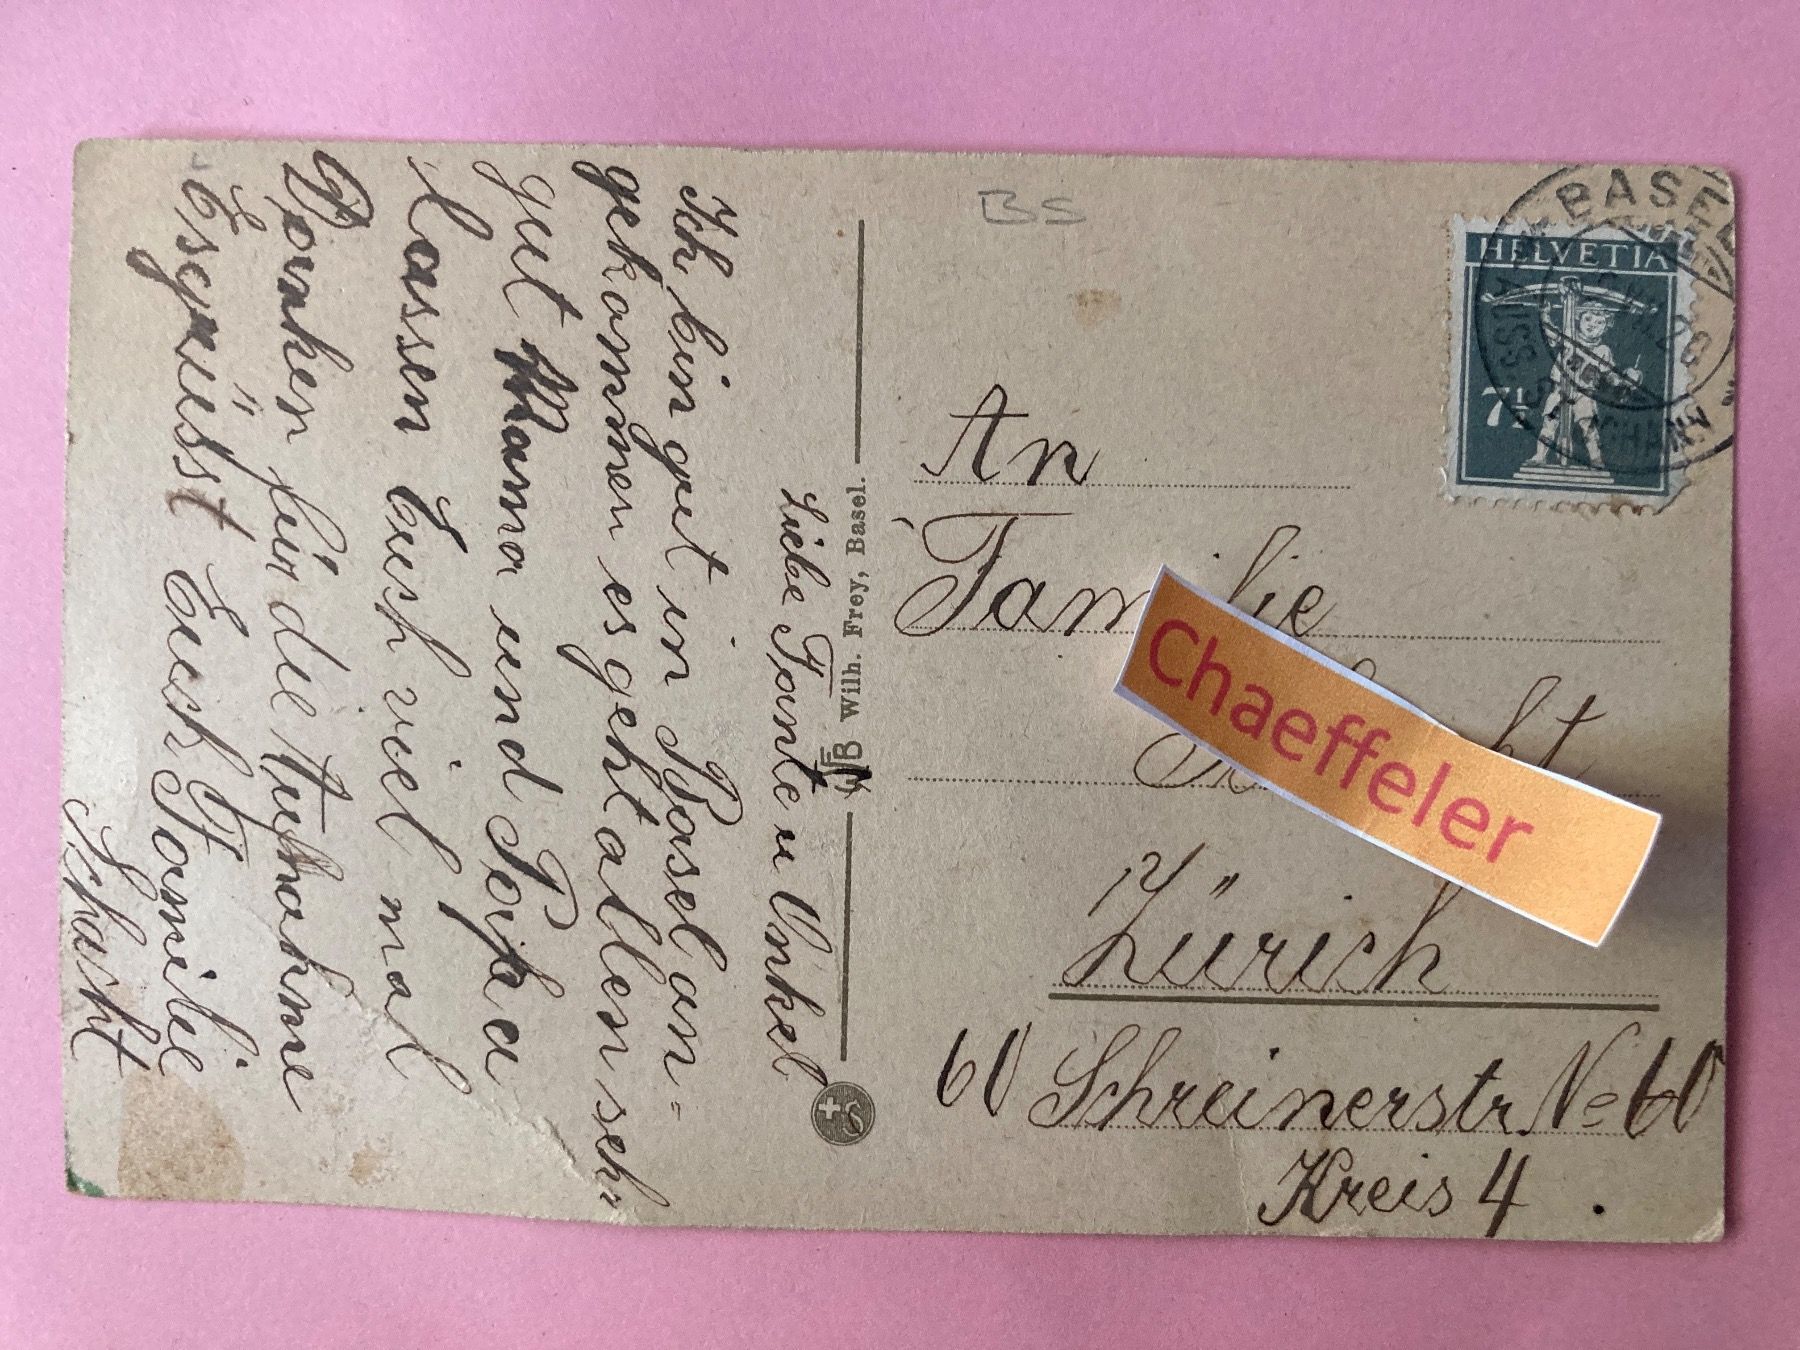 Liebe Tante u Onkel
Ich bin gut in Basel an=
gekommen es geht allen sehr
gut Mama und Papa
lassen Euch viel mal
Danken für die Aufnahme
Es grüsst Euch Familie
Schacht
Wilh. Frey, Basel.
BS
BASEL
HELVETIA
7½
An
Familie
Chaeffeler
Zürich
60 Schreinerstr. No 60
Kreis 4.